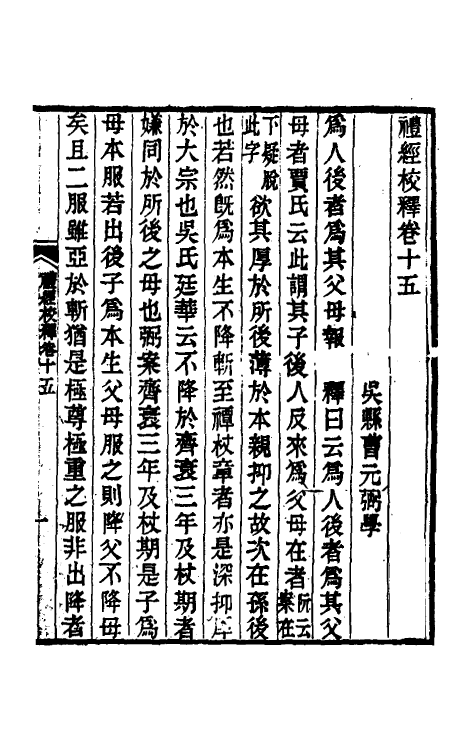 禮經校釋卷十五
吳縣曹元弼學
爲人後者爲其父母報　釋曰云爲人後者爲其父
母者賈氏云此謂其子後人反來爲父母在者阮云案在
下疑脫此字欲其厚於所後薄於本親抑之故次在孫後
也若然旣爲本生不降斬至禫杖章者亦是深抑
於大宗也吳氏廷華云不降於齊衰三年及杖期者
嫌同於所後之母也弼案齊衰三年及杖期是子爲
母本服若出後子爲本生父母服之則降父不降母
矣且二服雖亞於斬猶是極尊極重之服非出降者
禮經校釋卷十五
一